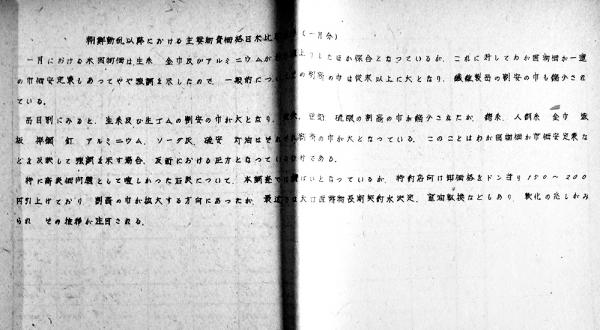 朝鮮動乱以降における主要物資価格日米比 (一月分)
一月における米国物価は生糸 金巾及びアルミニウムが 上したほか保合となつているが、これに対してわが国物価が一連
の市価安定策もあつてやや強調を示したので、一般的につい の割高の巾は従来以上に大となり、繊維製品の割安の巾も縮少され
ている。
品目別にみると、生糸及び生ゴムの割安の巾が大となり、 亜鉛 硫酸の割高の巾が縮少されたが、綿糸、人絹糸 金巾
板 棒鋼 釘 アルミニウム、ソーダ灰、硫安 灯油は 割高の巾が大となつている。このことはわが国物価が市価安定策な
どを反映して強調を示す場合、反 における圧力となつている けである。
特に高炭価問題として喧しかつた石炭について、本調査で 保合いとなつているが、特約石向け 価格をトン当り150〜200
円引上げており 割高の巾が拡大する方向にあつたが、最近 大口 需物長期契約 決定、重油転換などもあり、軟化の兆しがみ
られ その推移が注目される。